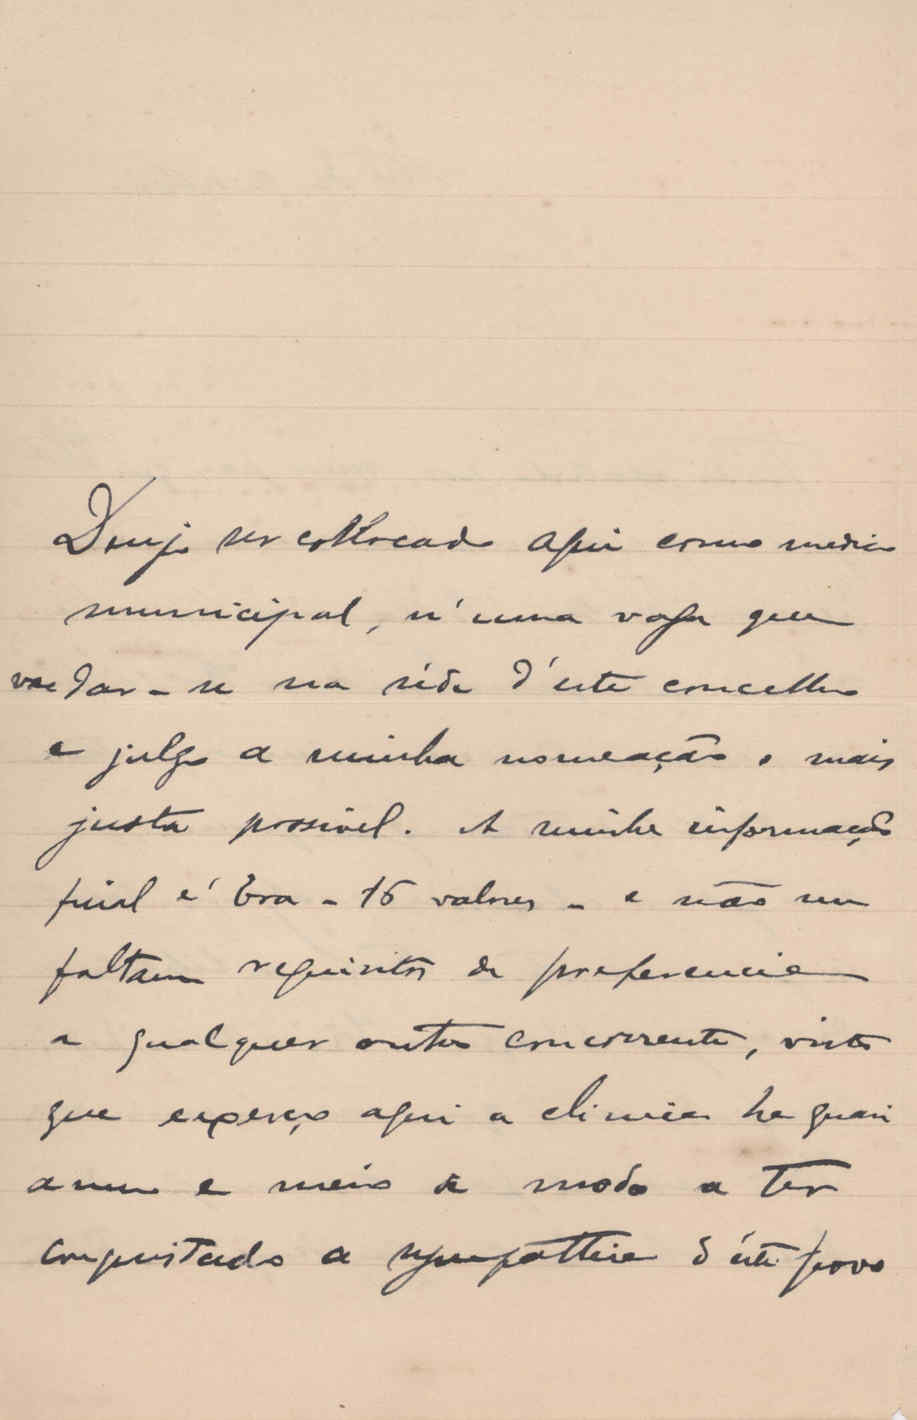 Desejo ser collocado aqui como medico
municipal, n'uma vaga que
vae dar-se na séde d'este concelho
e julgo a minha nomeação o mais
justa possivel. A minha informação
final é boa - 15 valores - e não me
faltam requisitos de preferencia
a qualquer outro concorrente, visto
que exerço aqui a clinica ha quasi
anno e meio de modo a ter
conquistado a sympathia d'este povo